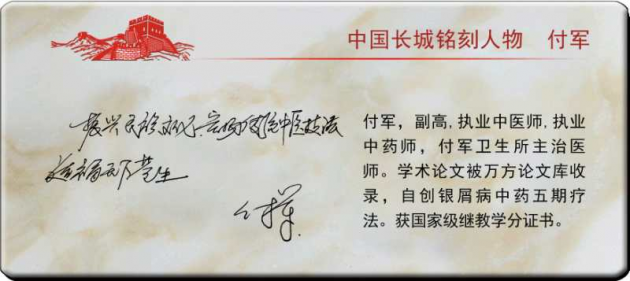 中国长城铭刻人物 付军
振兴民族文化,宏扬传统中医技法
造福天下苍生
付军
付军，副高,执业中医师,执业
中药师，付军卫生所主治医
师。学术论文被万方论文库收
录，自创银屑病中药五期疗
法。获国家级继教学分证书。